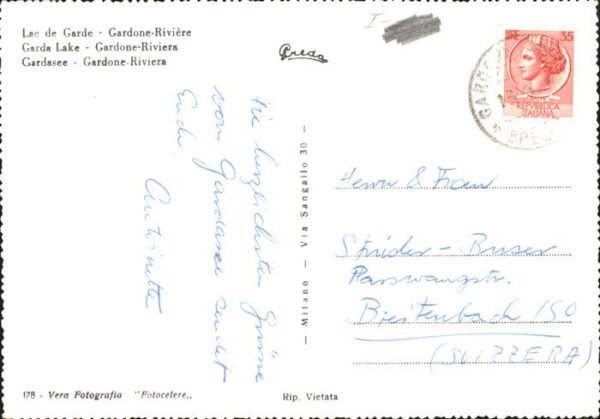 Lac de Garde - Gardone-Rivière
Garda Lake - Gardone-Riviera
Gardasee - Gardone-Riviera
I-
Preda
LIRE 35
REPVBBLICA
ITALIANA
GARDONE
Die herzlichsten Grüsse
vom Gardasee sendet
Euch,
Antoinette
— Milano — Via Sangallo 30 —
Herrn & Frau
Studer - Buser
Passwangstr.
Breitenbach / SO
(SVIZZERA)
178 - Vera Fotografia "Fotocelere„
Rip. Vietata